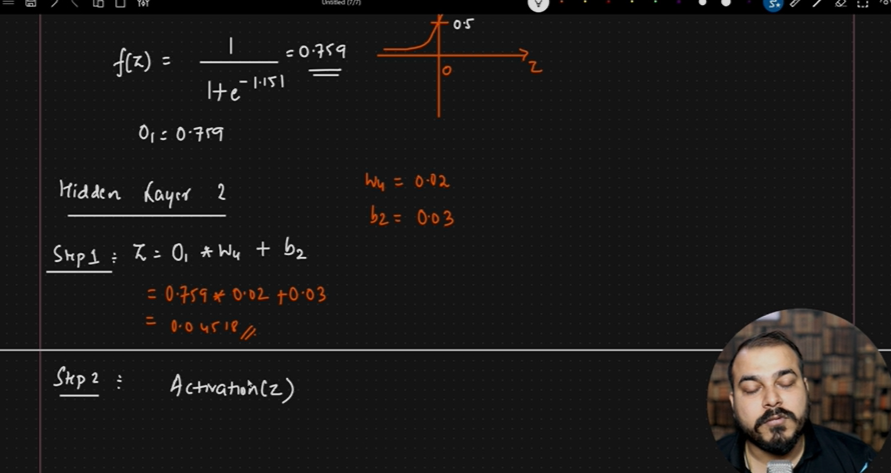 Untitled (7/7)
f(z) = 1 / 1+e^-1.151 = 0.759
0.5
0
z
O₁ = 0.759
Hidden Layer 2
w₄ = 0.02
b₂ = 0.03
Step 1 : z = O₁ * w₄ + b₂
= 0.759 * 0.02 + 0.03
= 0.04518 //
Step 2 : Activation(z)